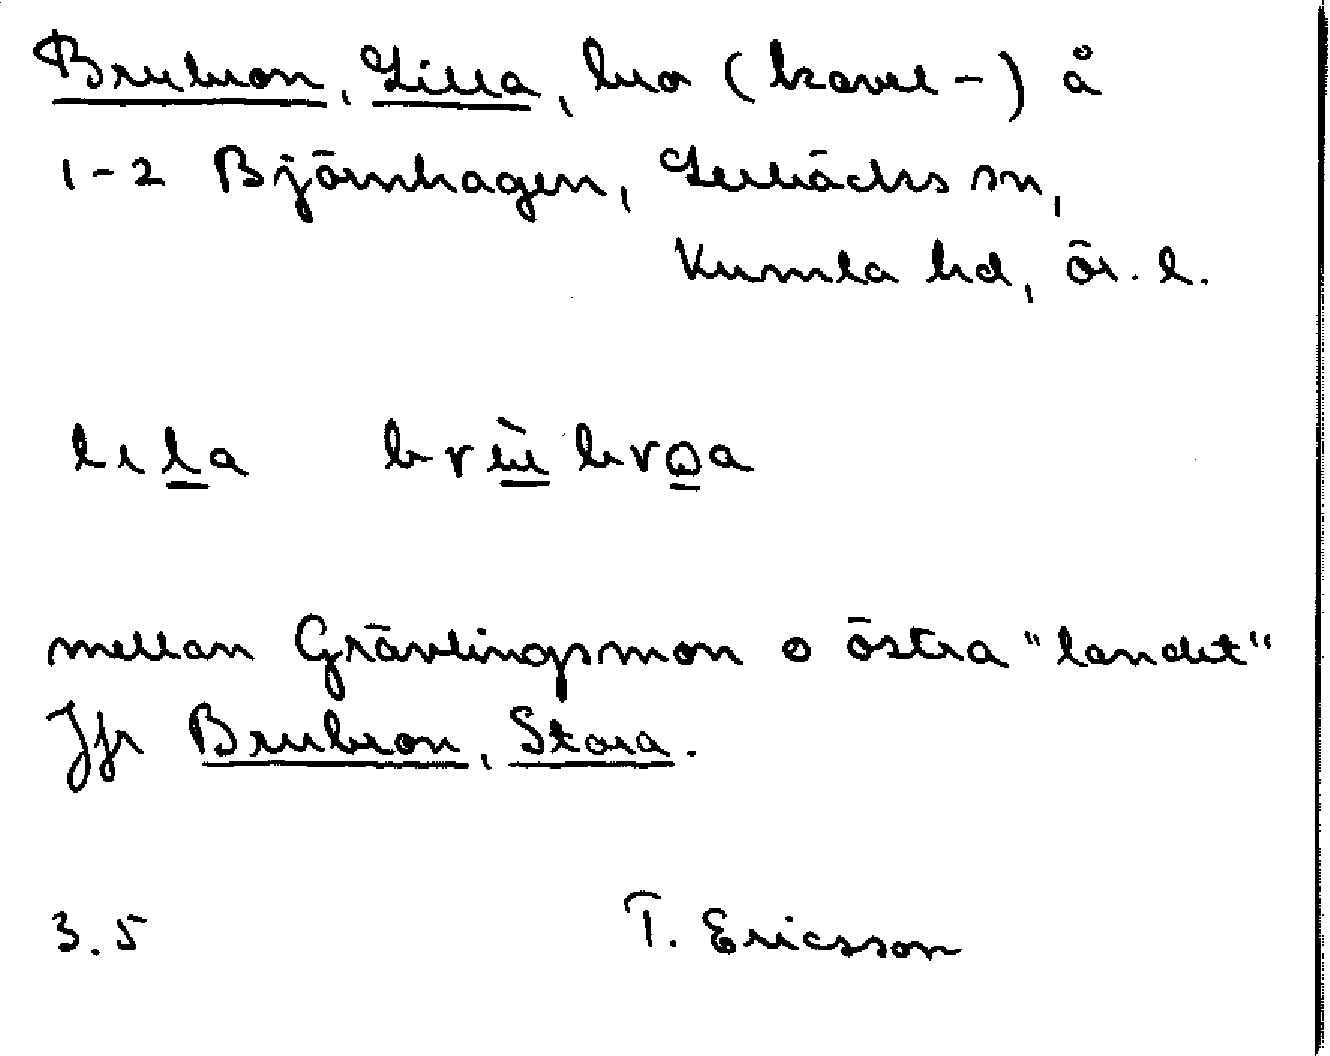 Brubron, Lilla, bro (kavel-) å
1-2 Björnhagen, Lerbäcks sn,
Kumla hd, ör. l.
mellan Grävlingsmon o östra "landet"
Jfr Brubron, Stora.
3.5 T. Ericsson